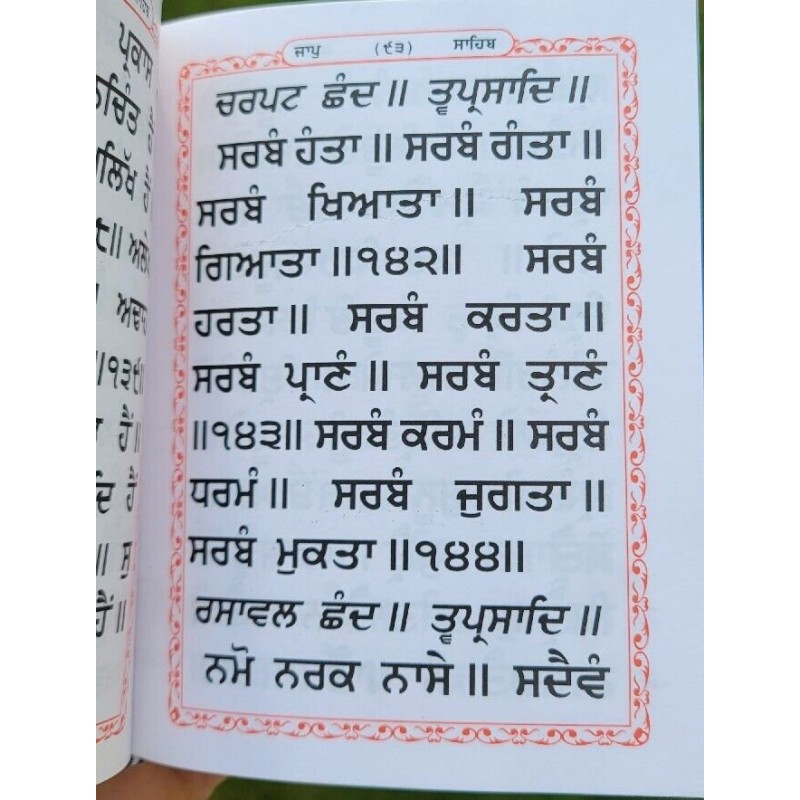 ਜਾਪੁ (੯੩) ਸਾਹਿਬ
ਚਰਪਟ ਛੰਦ ॥ ਤ੍ਵਪ੍ਰਸਾਦਿ ॥
ਸਰਬੰ ਹੰਤਾ ॥ ਸਰਬੰ ਗੰਤਾ ॥
ਸਰਬੰ ਖਿਆਤਾ ॥ ਸਰਬੰ
ਗਿਆਤਾ ॥੧੪੨॥ ਸਰਬੰ
ਹਰਤਾ ॥ ਸਰਬੰ ਕਰਤਾ ॥
ਸਰਬੰ ਪ੍ਰਾਣੰ ॥ ਸਰਬੰ ਤ੍ਰਾਣੰ
॥੧੪੩॥ ਸਰਬੰ ਕਰਮੰ ॥ ਸਰਬੰ
ਧਰਮੰ ॥ ਸਰਬੰ ਜੁਗਤਾ ॥
ਸਰਬੰ ਮੁਕਤਾ ॥੧੪੪॥
ਰਸਾਵਲ ਛੰਦ ॥ ਤ੍ਵਪ੍ਰਸਾਦਿ ॥
ਨਮੋ ਨਰਕ ਨਾਸੇ ॥ ਸਦੈਵੰ